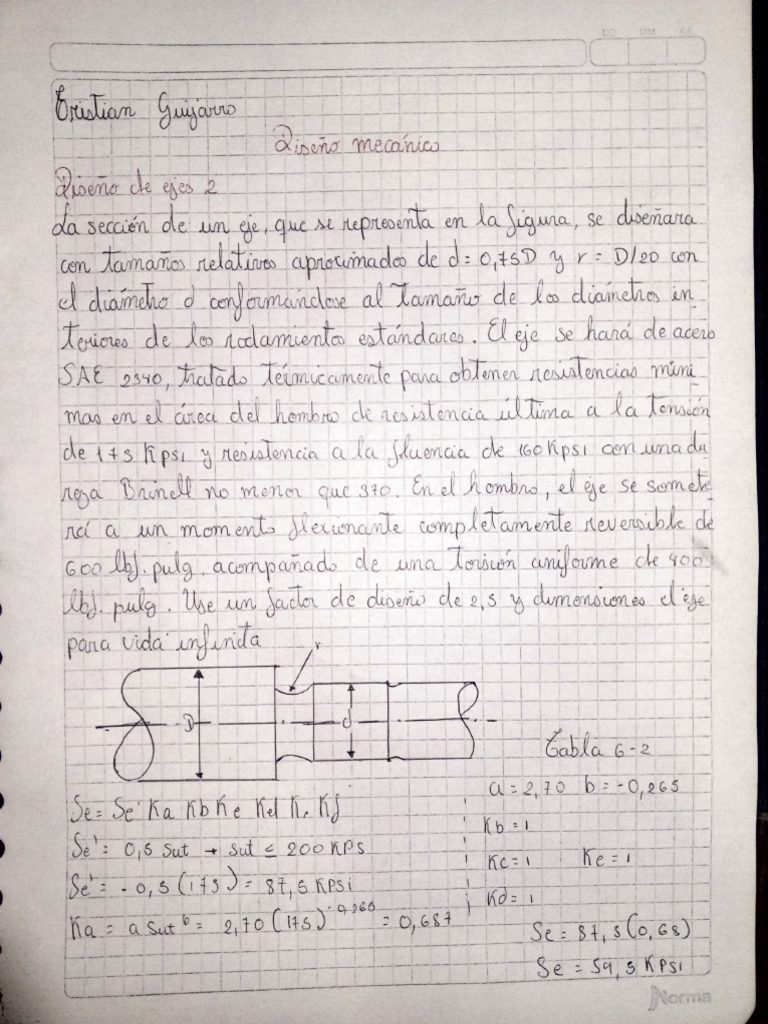 DD MM AA
Cristian Guijarro
Diseño mecánico
Diseño de ejes 2
La sección de un eje, que se representa en la figura, se diseñara
con tamaños relativos aproximados de d = 0,75D y r = D/20 con
el diámetro d conformándose al tamaño de los diámetros in
teriores de los rodamientos estándares. El eje se hará de acero
SAE 2340, tratado térmicamente para obtener resistencias míni
mas en el área del hombro de resistencia última a la tensión
de 175 Kpsi y resistencia a la fluencia de 160 Kpsi con una du
reza Brinell no menor que 370. En el hombro, el eje se somete
rá a un momento flexionante completamente reversible de
600 lbf. pulg, acompañado de una torsión uniforme de 400
lbf. pulg. Use un factor de diseño de 2,5 y dimensiones el eje
para vida infinita
r
D
d
Tabla 6-2
a = 2,70 b = -0,265
Se = Se' Ka Kb Kc Kd Ke Kf
Kb = 1
Se' = 0,5 Sut → Sut ≤ 200 KPS
Kc = 1 Ke = 1
Se' = -0,5 (175) = 87,5 KPSi
Kd = 1
Ka = a Sut^b = 2,70 (175)^-0,265 = 0,687
Se = 87,5 (0,68)
Se = 59,5 KPSi
Norma